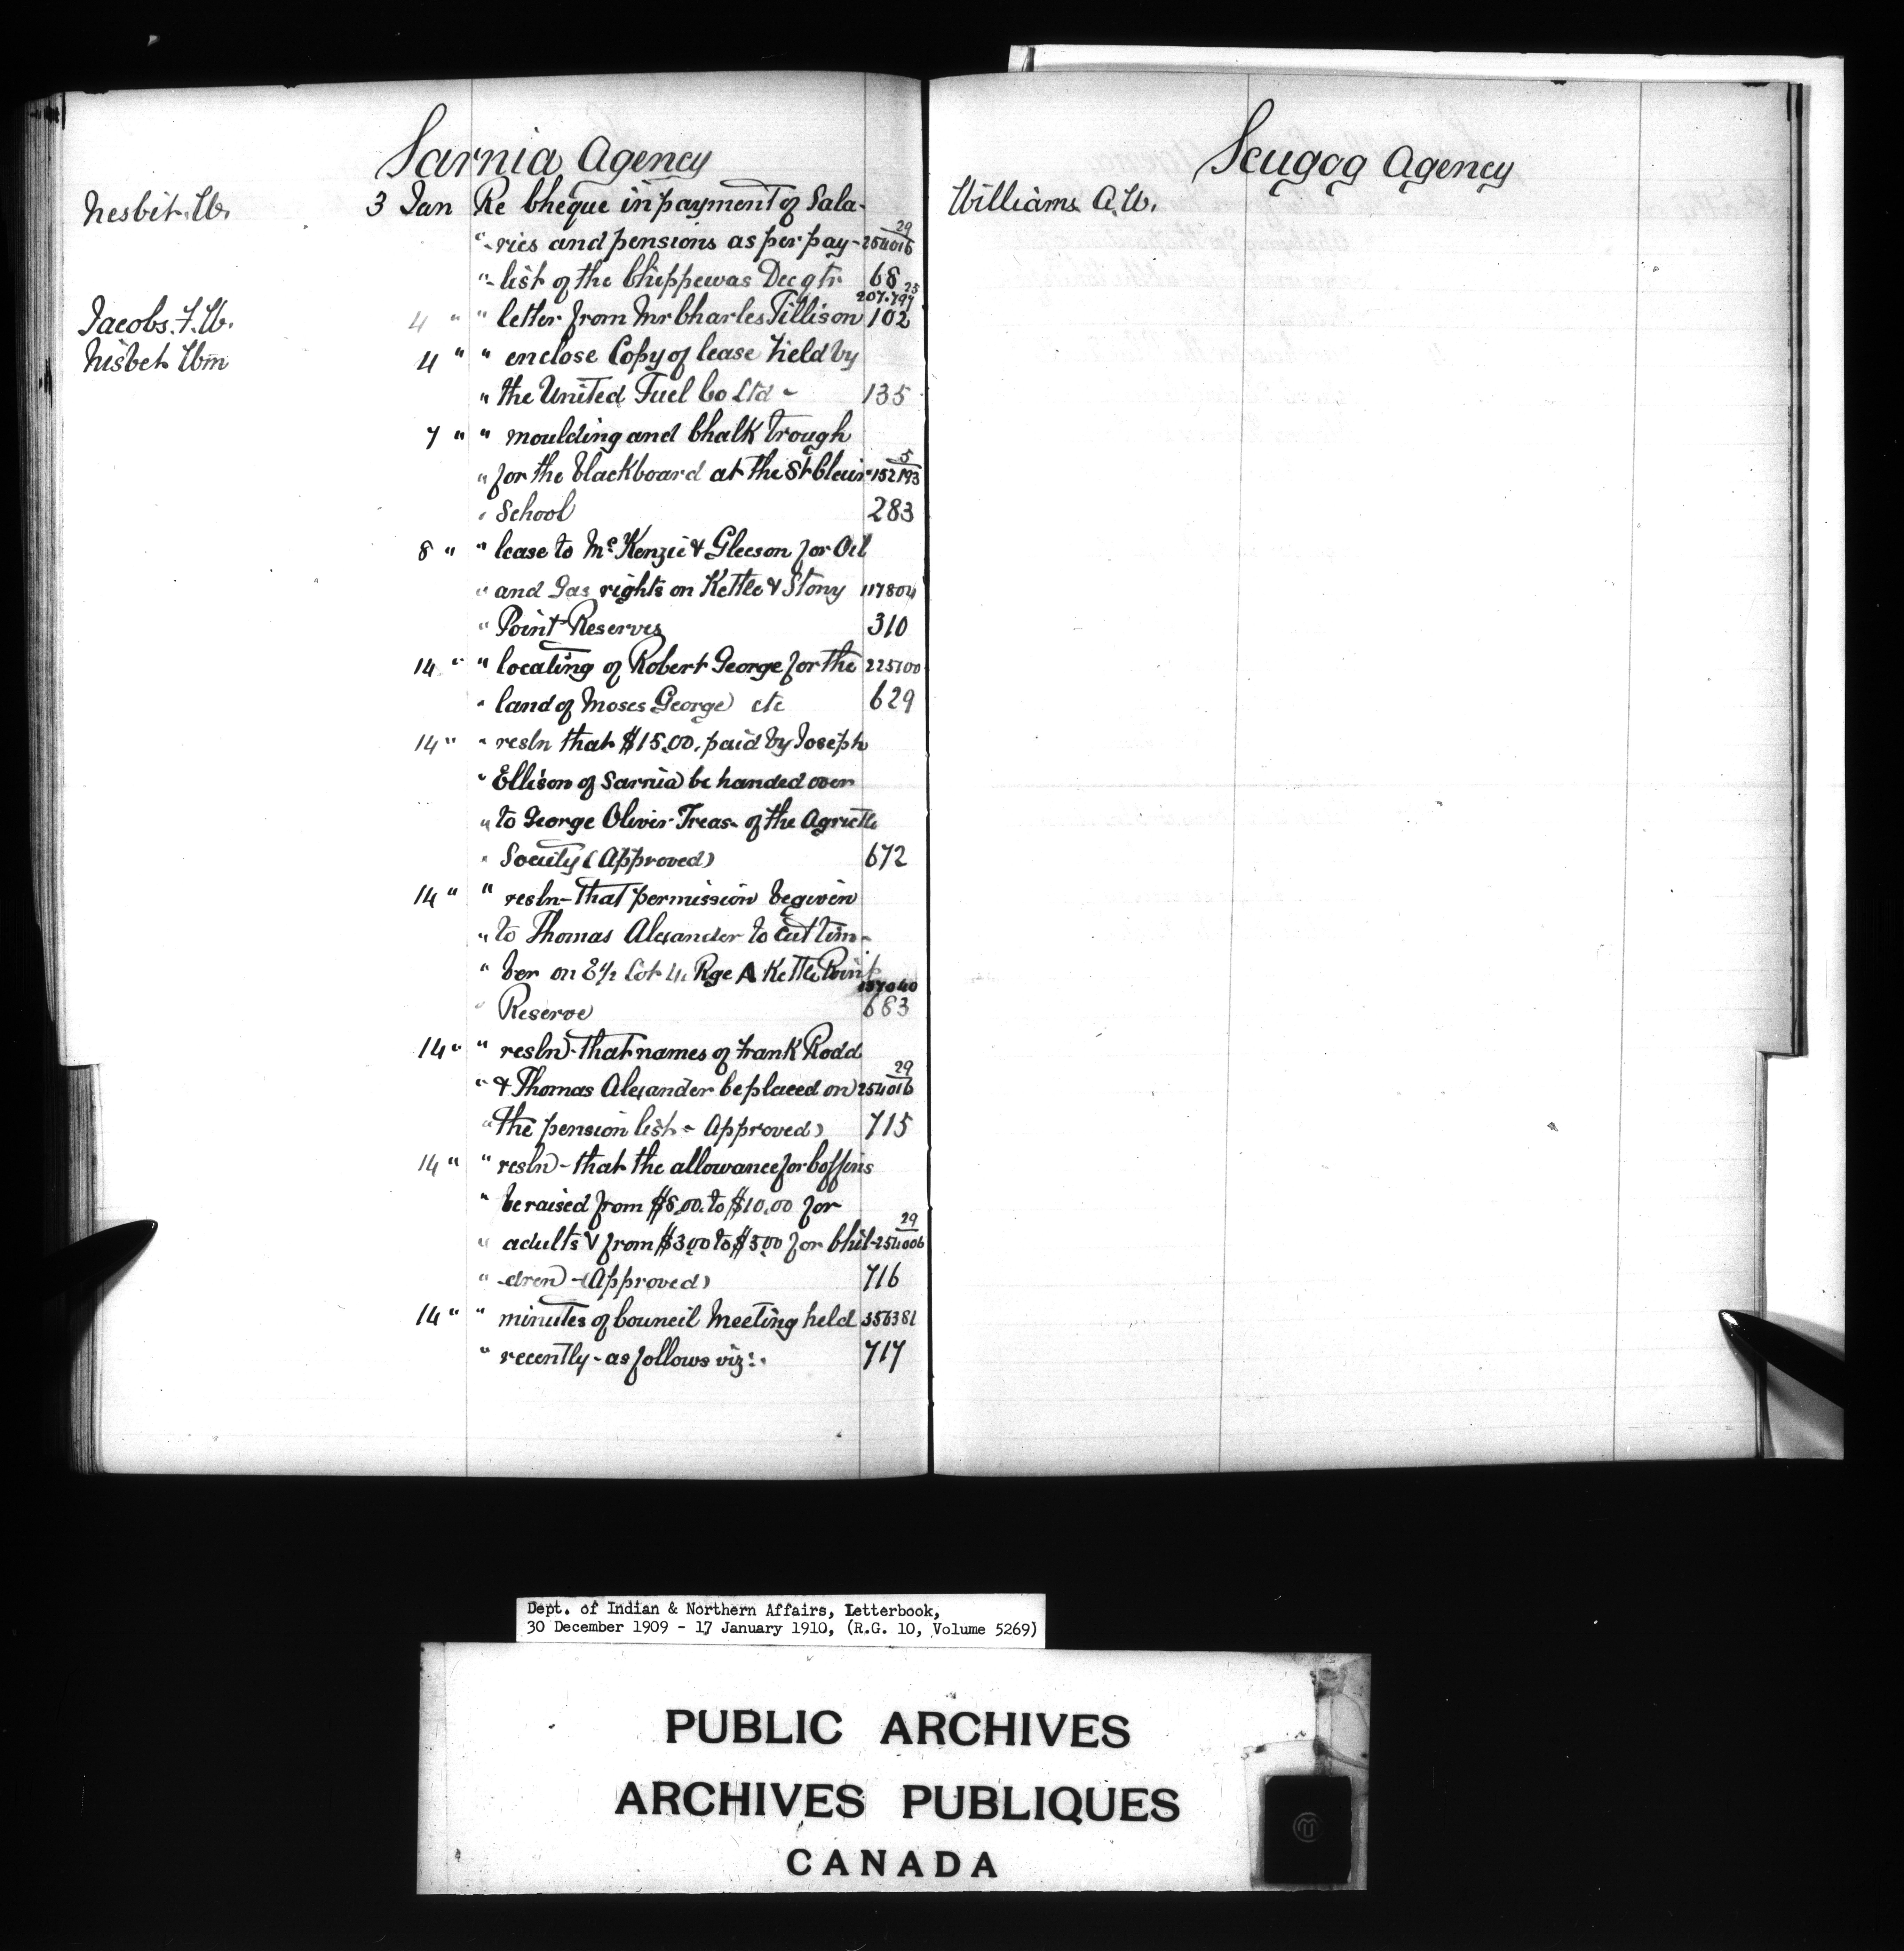 Sarnia Agency
Nesbit. W. 3 Jan Re Cheque in payment of Sala-
" -ries and pensions as per pay- 29 254016
" -list of the Chippewas Dec qtr 68
Jacobs. F. W. 4 " " letter from Mr Charles Tillison 25 207.797 102
Nisbet Wm 4 " " enclose Copy of lease held by
" the United Fuel Co Ltd - 135
7 " " moulding and Chalk trough
" for the blackboard at the St Clair 5 152193
" School 283
8 " " lease to McKenzie & Gleeson for Oil
" and Gas rights on Kettle & Stony 117804
" Point Reserves 310
14 " " locating of Robert George for the 225100
" land of Moses George etc 629
14 " " resln that $15.00. paid by Joseph
" Ellison of Sarnia be handed over
" to George Oliver Treas- of the Agrictl
" Society (Approved) 672
14 " " resln- that permission be given
" to Thomas Alexander to cut tim-
" ber on E½ Lot 4, Rge A Kettle Point
" Reserve 157040 683
14 " " resln- that names of Frank Rodd
" & Thomas Alexander be placed on 29 254016
" the pension list - Approved) 715
14 " " resln - that the allowance for Coffins
" be raised from $8.00. to $10.00 for
" adults & from $3.00 to $5.00 for Chil- 29 254006
" -dren - (Approved) 716
14 " " minutes of Council Meeting held 356381
" recently - as follows viz:- 717
Scugog Agency
Williams A. W.
Dept. of Indian & Northern Affairs, Letterbook,
30 December 1909 - 17 January 1910, (R.G. 10, Volume 5269)
PUBLIC ARCHIVES
ARCHIVES PUBLIQUES
CANADA